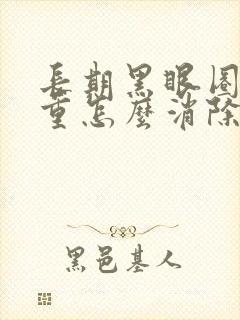 長期黑眼圈
重怎麼消除
黑邑基人